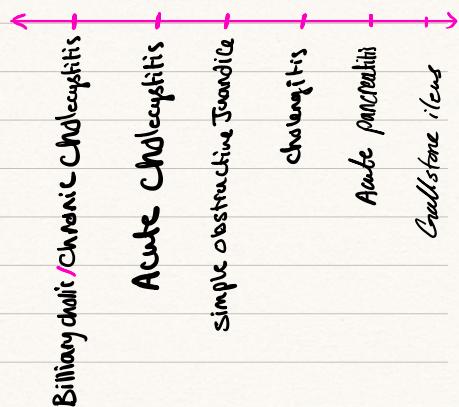 Billiary cholic/Chronic Cholecystitis
Acute Cholecystitis
Simple obstructive Juandice
cholangitis
Acute pancreatitis
Gallstone ileus